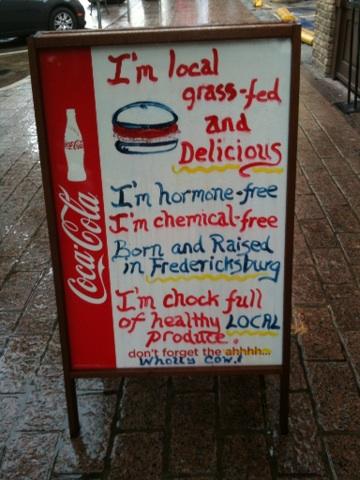 I'm local
grass-fed
and
Delicious
I'm hormone-free
I'm chemical-free
Born and Raised
in Fredericksburg
I'm chock full
of healthy LOCAL
produce.
don't forget the ahhhh...
Wholly Cow!
Coca-Cola
Coca-Cola